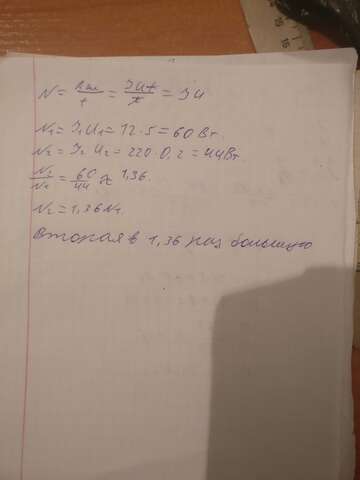 N = Aэл/t = IUt/t = IU
N₁ = I₁U₁ = 12 · 5 = 60 Вт.
N₂ = I₂ U₂ = 220 · 0,2 = 44 Вт.
N₂/N₁ = 60/44 ≈ 1,36.
N₂ = 1,36N₁.
Вторая в 1,36 раз большую